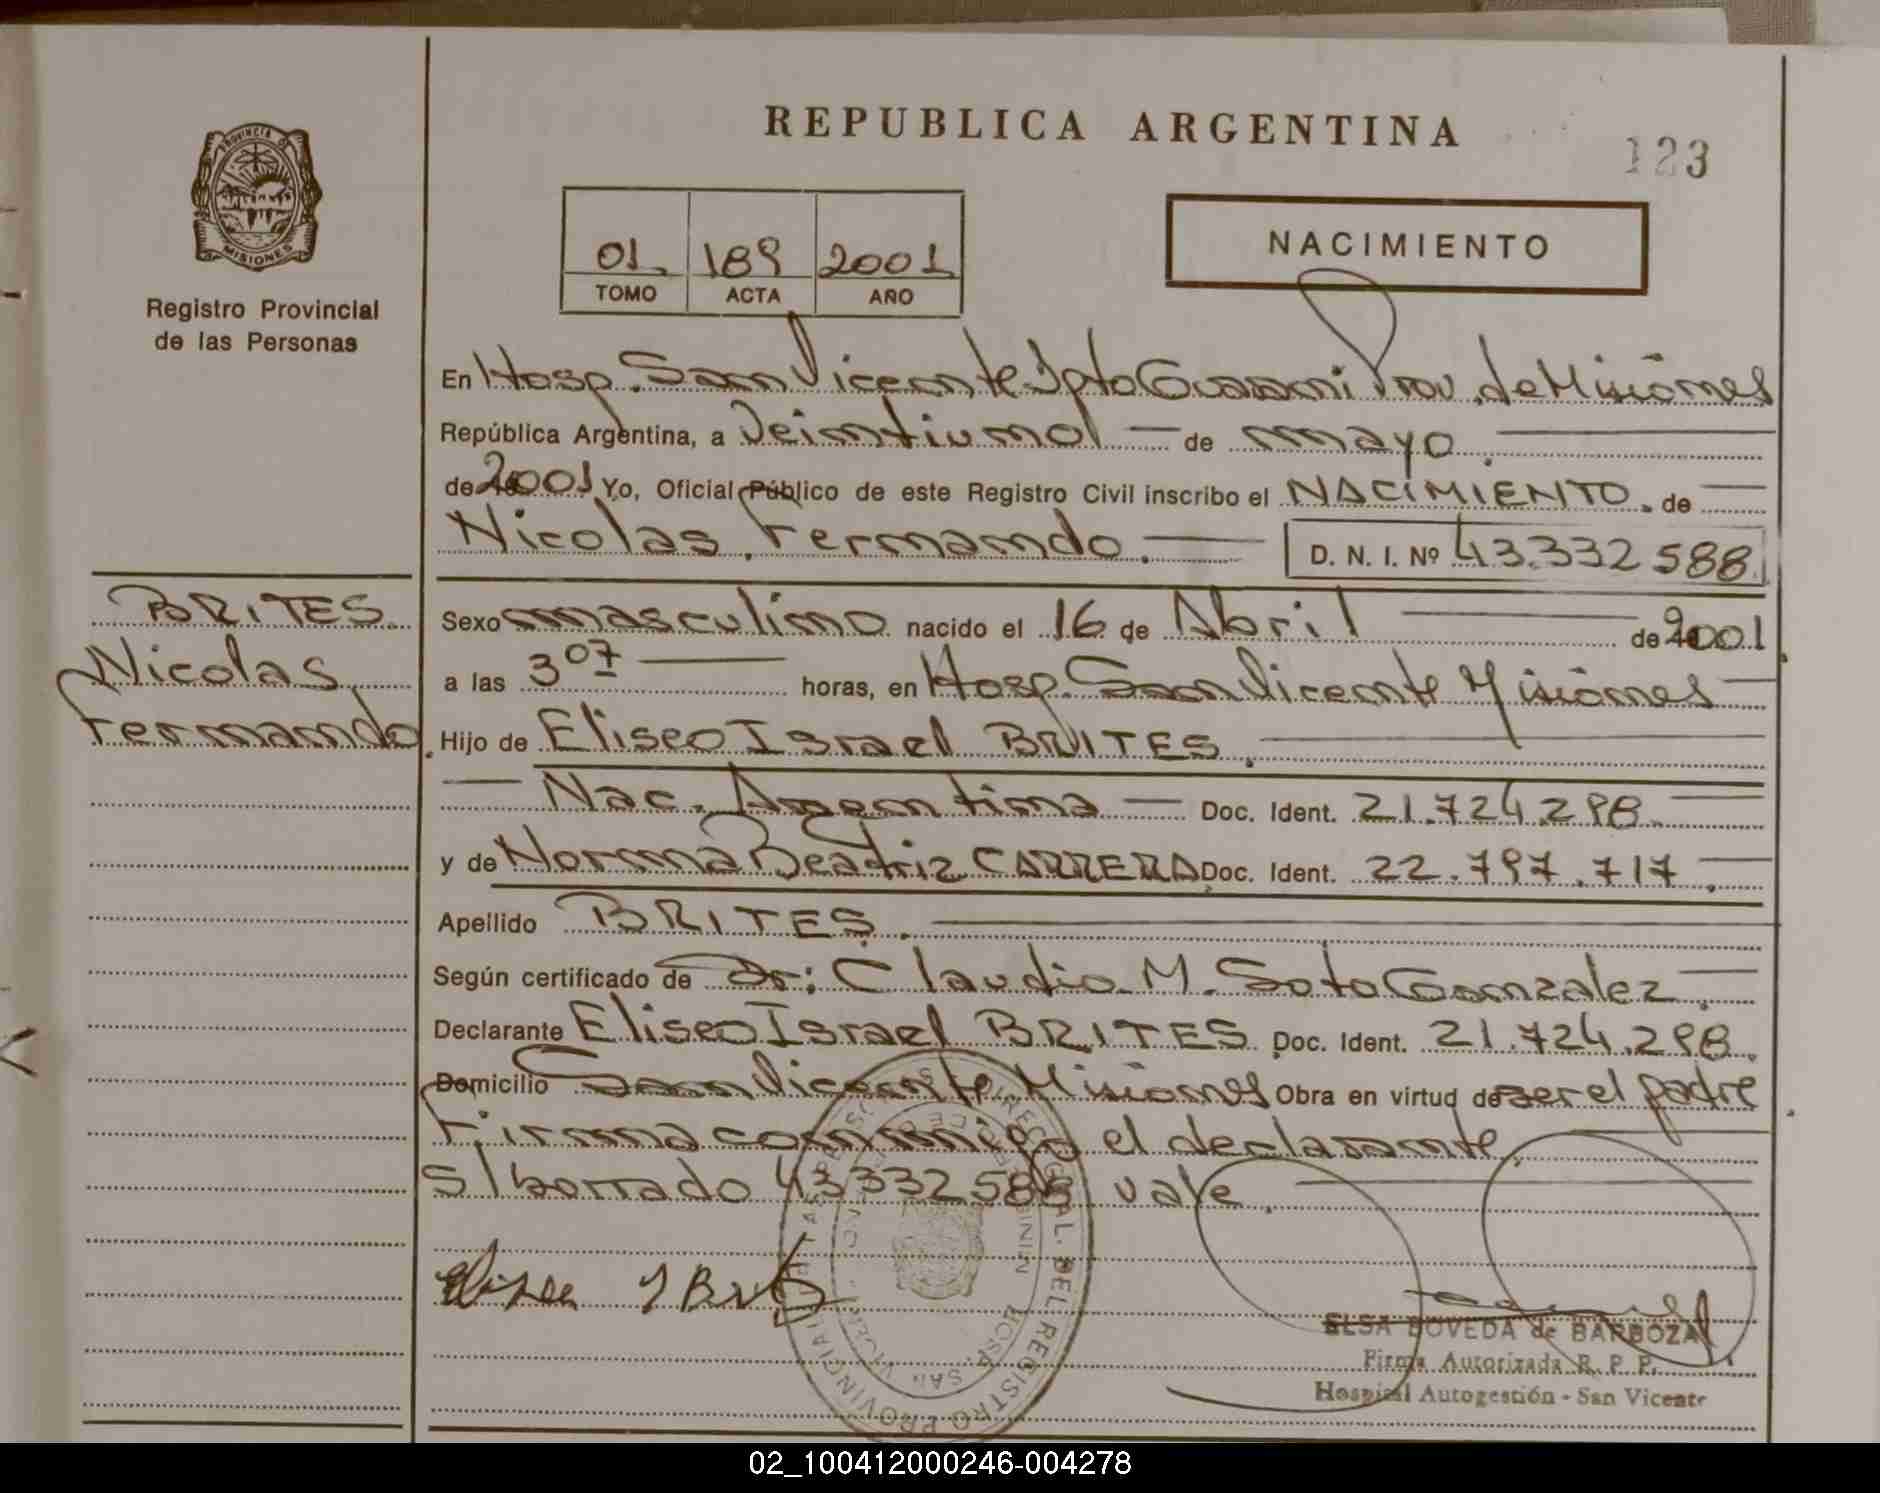 REPUBLICA ARGENTINA
123
PROVINCIA DE
MISIONES
Registro Provincial
de las Personas
01 189 2001
TOMO ACTA AÑO
NACIMIENTO
En Hosp. San Vicente Dpto Guarani Prov. de Misiones
República Argentina, a Veintiuno — de mayo.
de 2001 Yo, Oficial Público de este Registro Civil inscribo el NACIMIENTO. de
Nicolas Fernando. D. N. I. Nº 43.332 588
BRITES
Nicolas
Fernando.
Sexo masculino nacido el 16 de Abril de 2001
a las 3 07 horas, en Hosp. San Vicente Misiones
Hijo de Eliseo Israel BRITES.
Nac. Argentina — Doc. Ident. 21.724.298
y de Norma Beatriz CARRERA Doc. Ident. 22.797.717.
Apellido BRITES.
Según certificado de Dr: Claudio M. Soto Gonzalez.
Declarante Eliseo Israel BRITES Doc. Ident. 21.724.298.
Domicilio San Vicente Misiones Obra en virtud de ser el padre
Firma conmigo el declarante.
S/borrado 43332588 vale.
ELSA BOVEDA de BARBOZA
Firma Autorizada R. P. P.
Hospital Autogestión - San Vicente
02_100412000246-004278